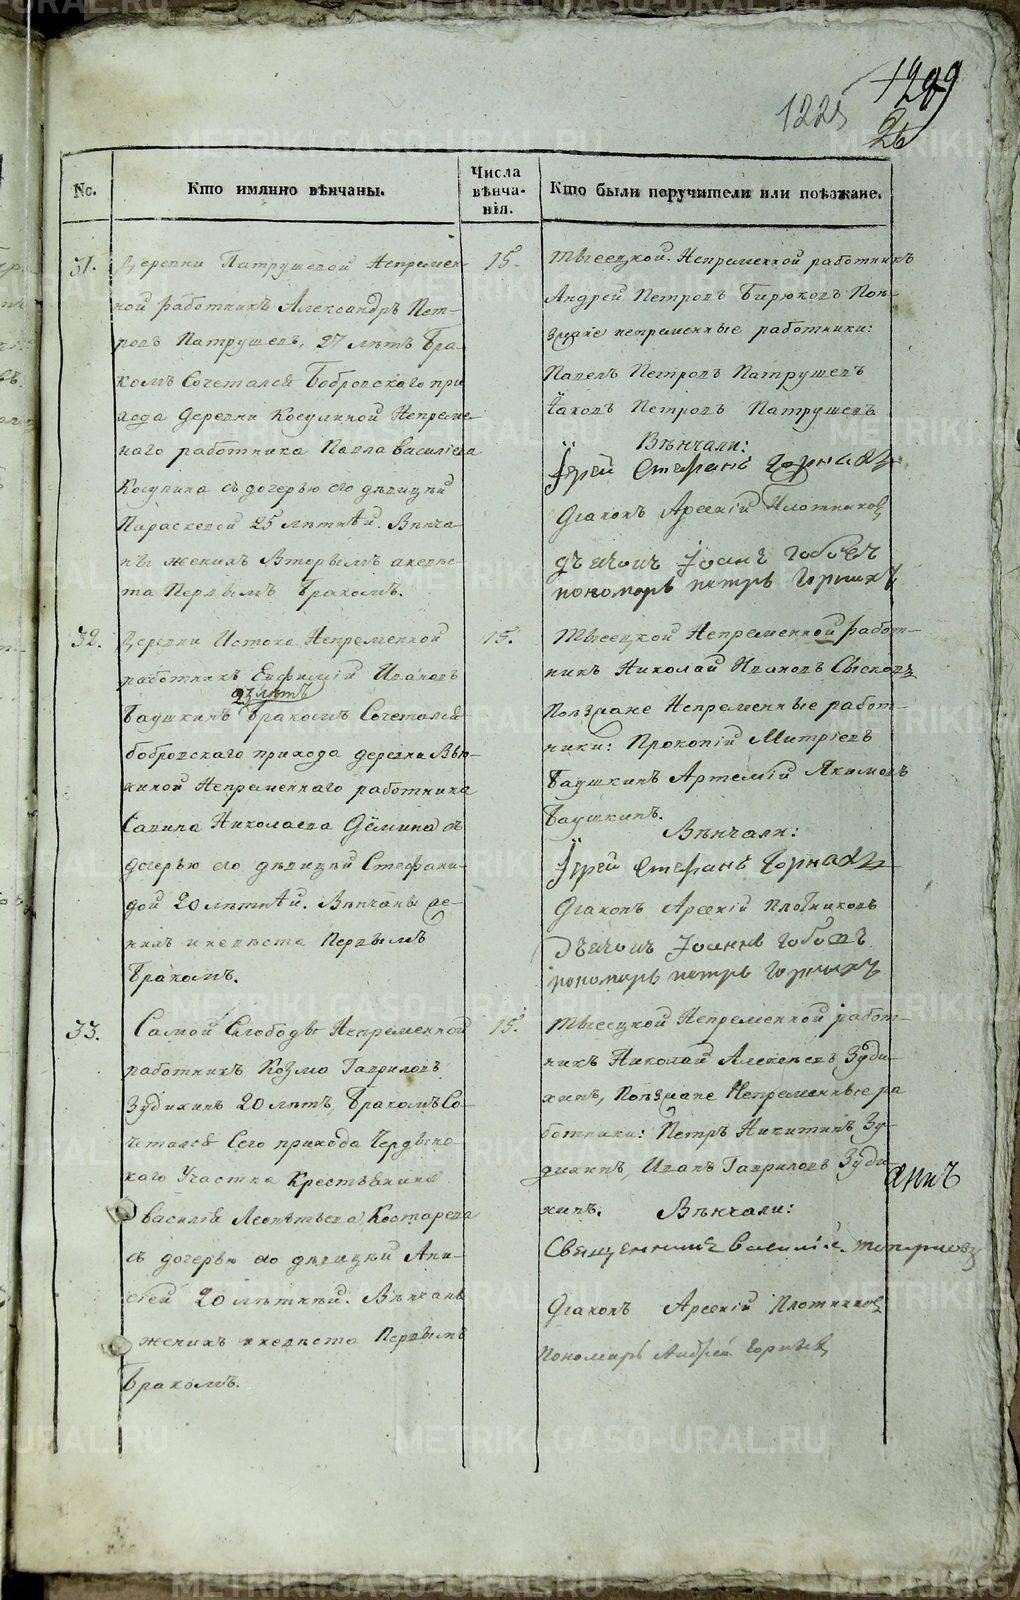 1289
1225
26
№.
Кто имянно вѣнчаны.
Числа вѣнча-
нія.
Кто были поручители или поѣзжане.
31.
Деревни Патрушевой Непремен-
ной работникъ Александръ Пет-
ровъ Патрушевъ, 27 лѣтъ Бра-
комъ Сочетался Бобровскаго при
хода деревни Косулиной Непреме-
наго работника Павла Василіева
Косулина съ дочерью его дѣвицѣй
Параскевой 25 лѣтнѣй. Вѣнча-
ны женихъ Вторымъ а невѣс-
та Первымъ бракомъ.
15
Тысецкой Непременной работникъ
Андрей Петровъ Бирюковъ Поѣ-
зжане непременные работники:
Павелъ Петровъ Патрушевъ
Іаковъ Петровъ Патрушевъ
Вѣнчали:
Іерей Стефанъ Горныхъ
Діаконъ Арсеній Плотниковъ
дьячокъ Іоаннъ
пономарь петръ Горныхъ
32.
Деревни Истока Непременной
работникъ Евфимій Ивановъ
23 лѣтъ
Баушкинъ Бракомъ Сочетался
бобровскаго прихода деревни Вью-
хиной Непременнаго работника
Савина Николаева Дёмина съ
дочерью его дѣвицѣй Стефани-
дой 20 лѣтнѣй. Вѣнчаны же-
нихъ и невѣста Первымъ
Бракомъ.
15.
Тысецкой Непременной работ-
никъ Николай Ивановъ Сысковъ
Поѣзжане Непременные работ-
ники: Прокопій Митріевъ
Баушкинъ Артемій Якимовъ
Баушкинъ.
Вѣнчали:
Іерей Стефанъ Горныхъ
Діаконъ Арсеній Плотниковъ
Дьячокъ Іоаннъ
пономарь петръ Горныхъ
33.
Самой Слободы Непременной
работникъ Козма Гавриловъ
Зудихинъ 20 лѣтъ, Бракомъ Со-
четался Сего прихода Чердынс-
каго Участка Крестьянина
Василія Леонтьева Костарева
съ дочерью его дѣвицѣй Ани-
сіей 20 лѣтнѣй. Вѣнчаны
женихъ и невѣста Первымъ
Бракомъ.
15
Тысецкой Непременной работ-
никъ Николай Алексѣевъ Зуди-
хинъ, Поѣзжане Непременные ра
ботники: Петръ Никитинъ Зу-
дихинъ, Иванъ Гавриловъ Зуди-
хинъ. Вѣнчали:
Священникъ Василій Топорковъ
Діаконъ Арсеній Плотниковъ
Пономарь Андрей Горныхъ
METRIKI.GASO-URAL.RU